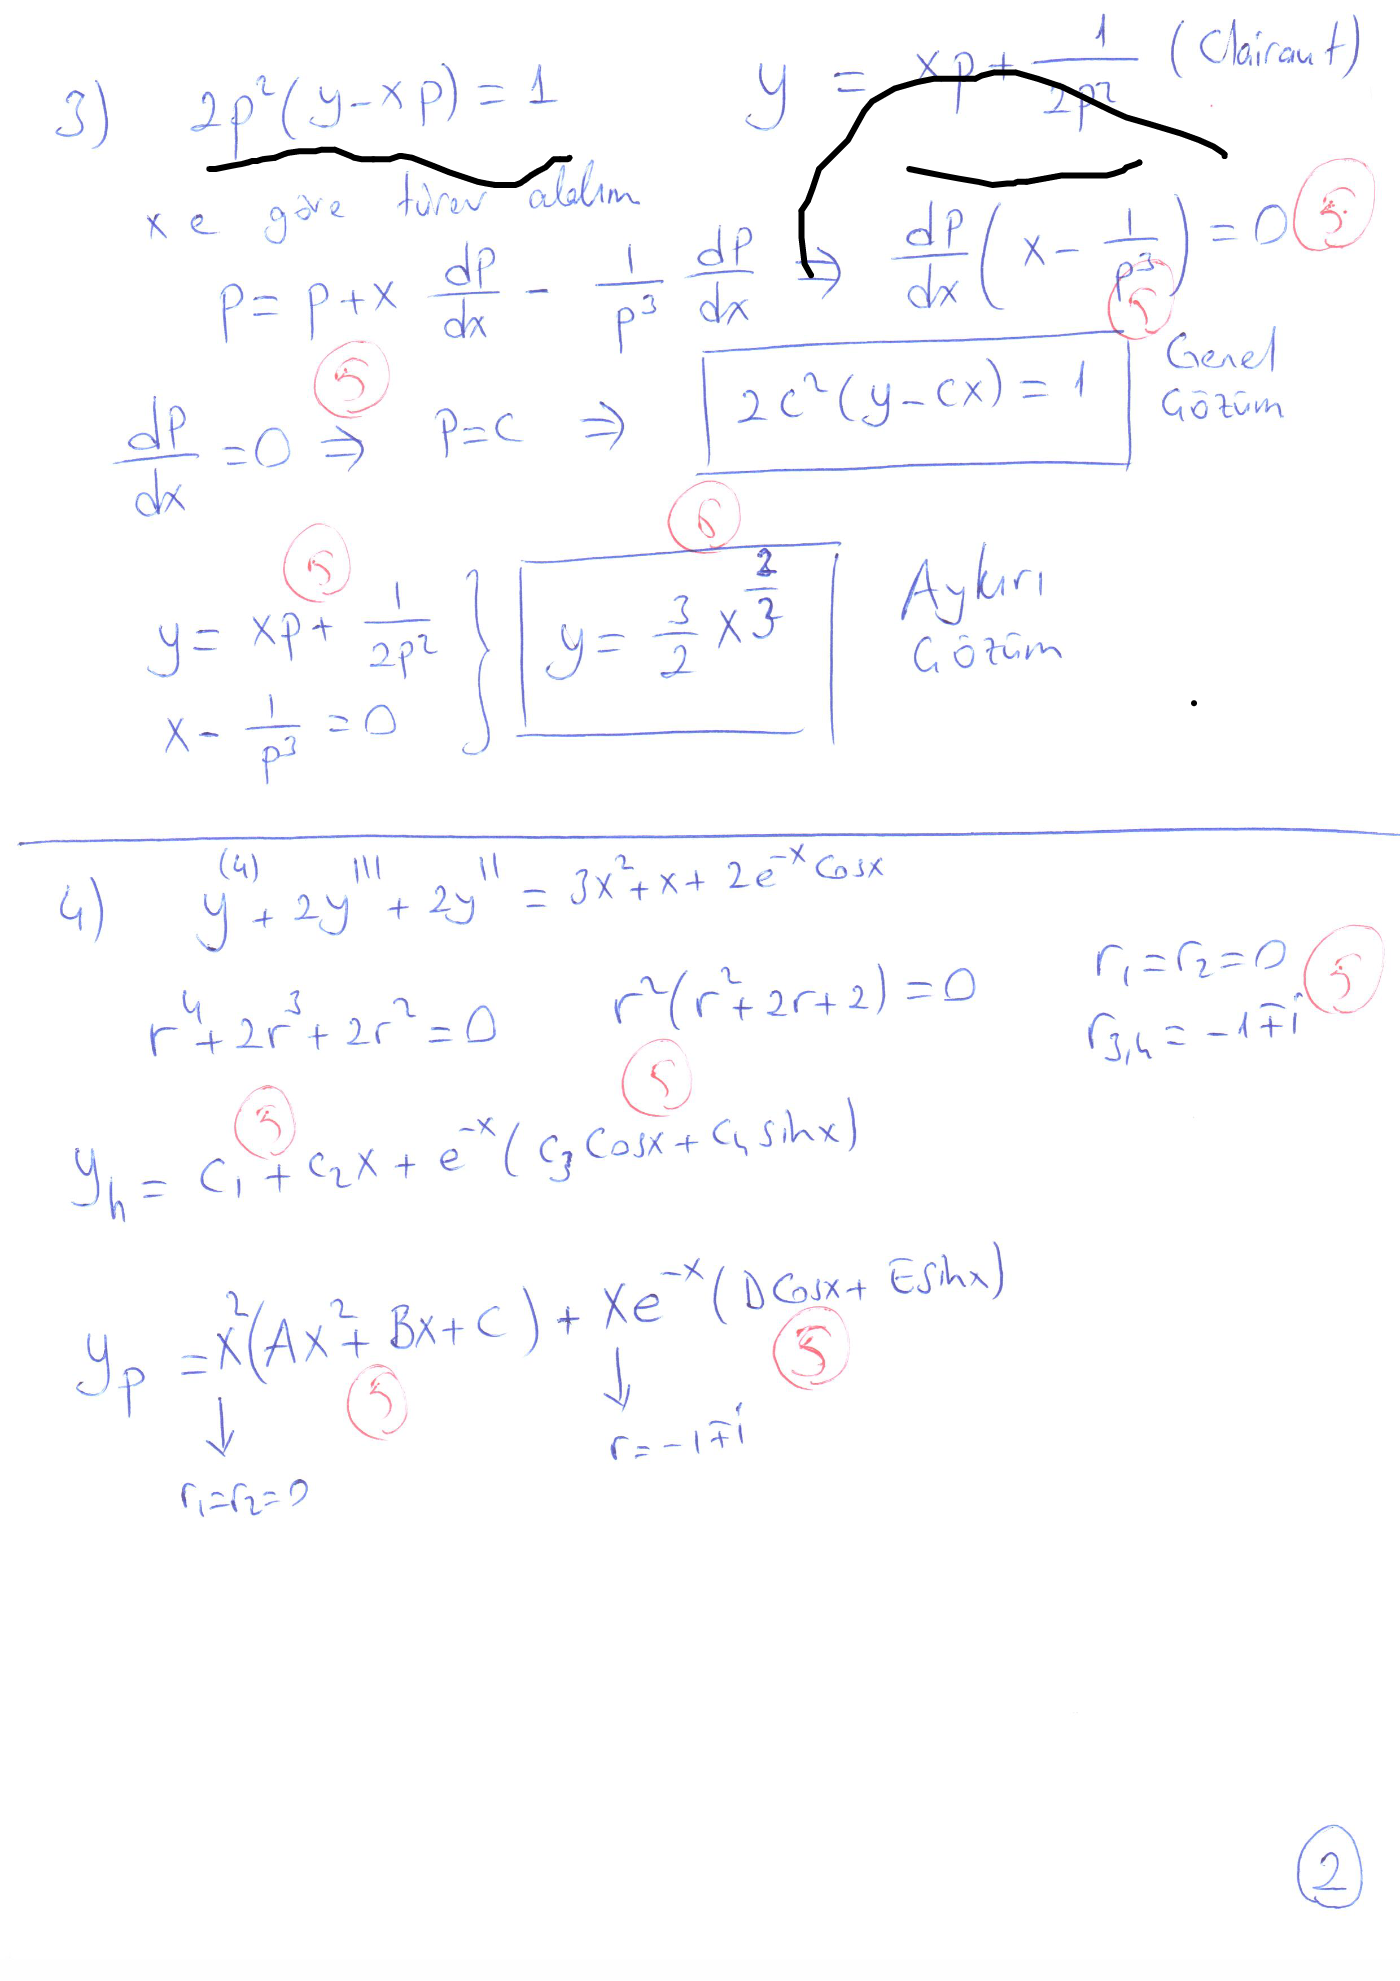 3) 2p²(y-xp) = 1 y = xp + 1/2p² (Clairaut)
x e göre türev alalım
p = p + x dp/dx - 1/p³ dp/dx ⇒ dp/dx (x - 1/p³) = 0 5
dp/dx = 0 ⇒ p = c ⇒ 2c²(y-cx) = 1 Genel Çözüm
5 5
y = xp + 1/2p²
x - 1/p³ = 0 } y = 3/2 x^(2/3) Aykırı Çözüm
5 6
4) y⁽⁴⁾ + 2y''' + 2y'' = 3x² + x + 2e^(-x) Cosx
r⁴ + 2r³ + 2r² = 0 r²(r² + 2r + 2) = 0 r₁ = r₂ = 0 5
r₃,₄ = -1∓i
5 5
y_h = c₁ + c₂x + e^(-x) (c₃ Cosx + c₄ sinx)
y_p = x²(Ax² + Bx + C) + xe^(-x) (D Cosx + E sinx)
5 5
↓ ↓
r₁=r₂=0 r = -1∓i
2